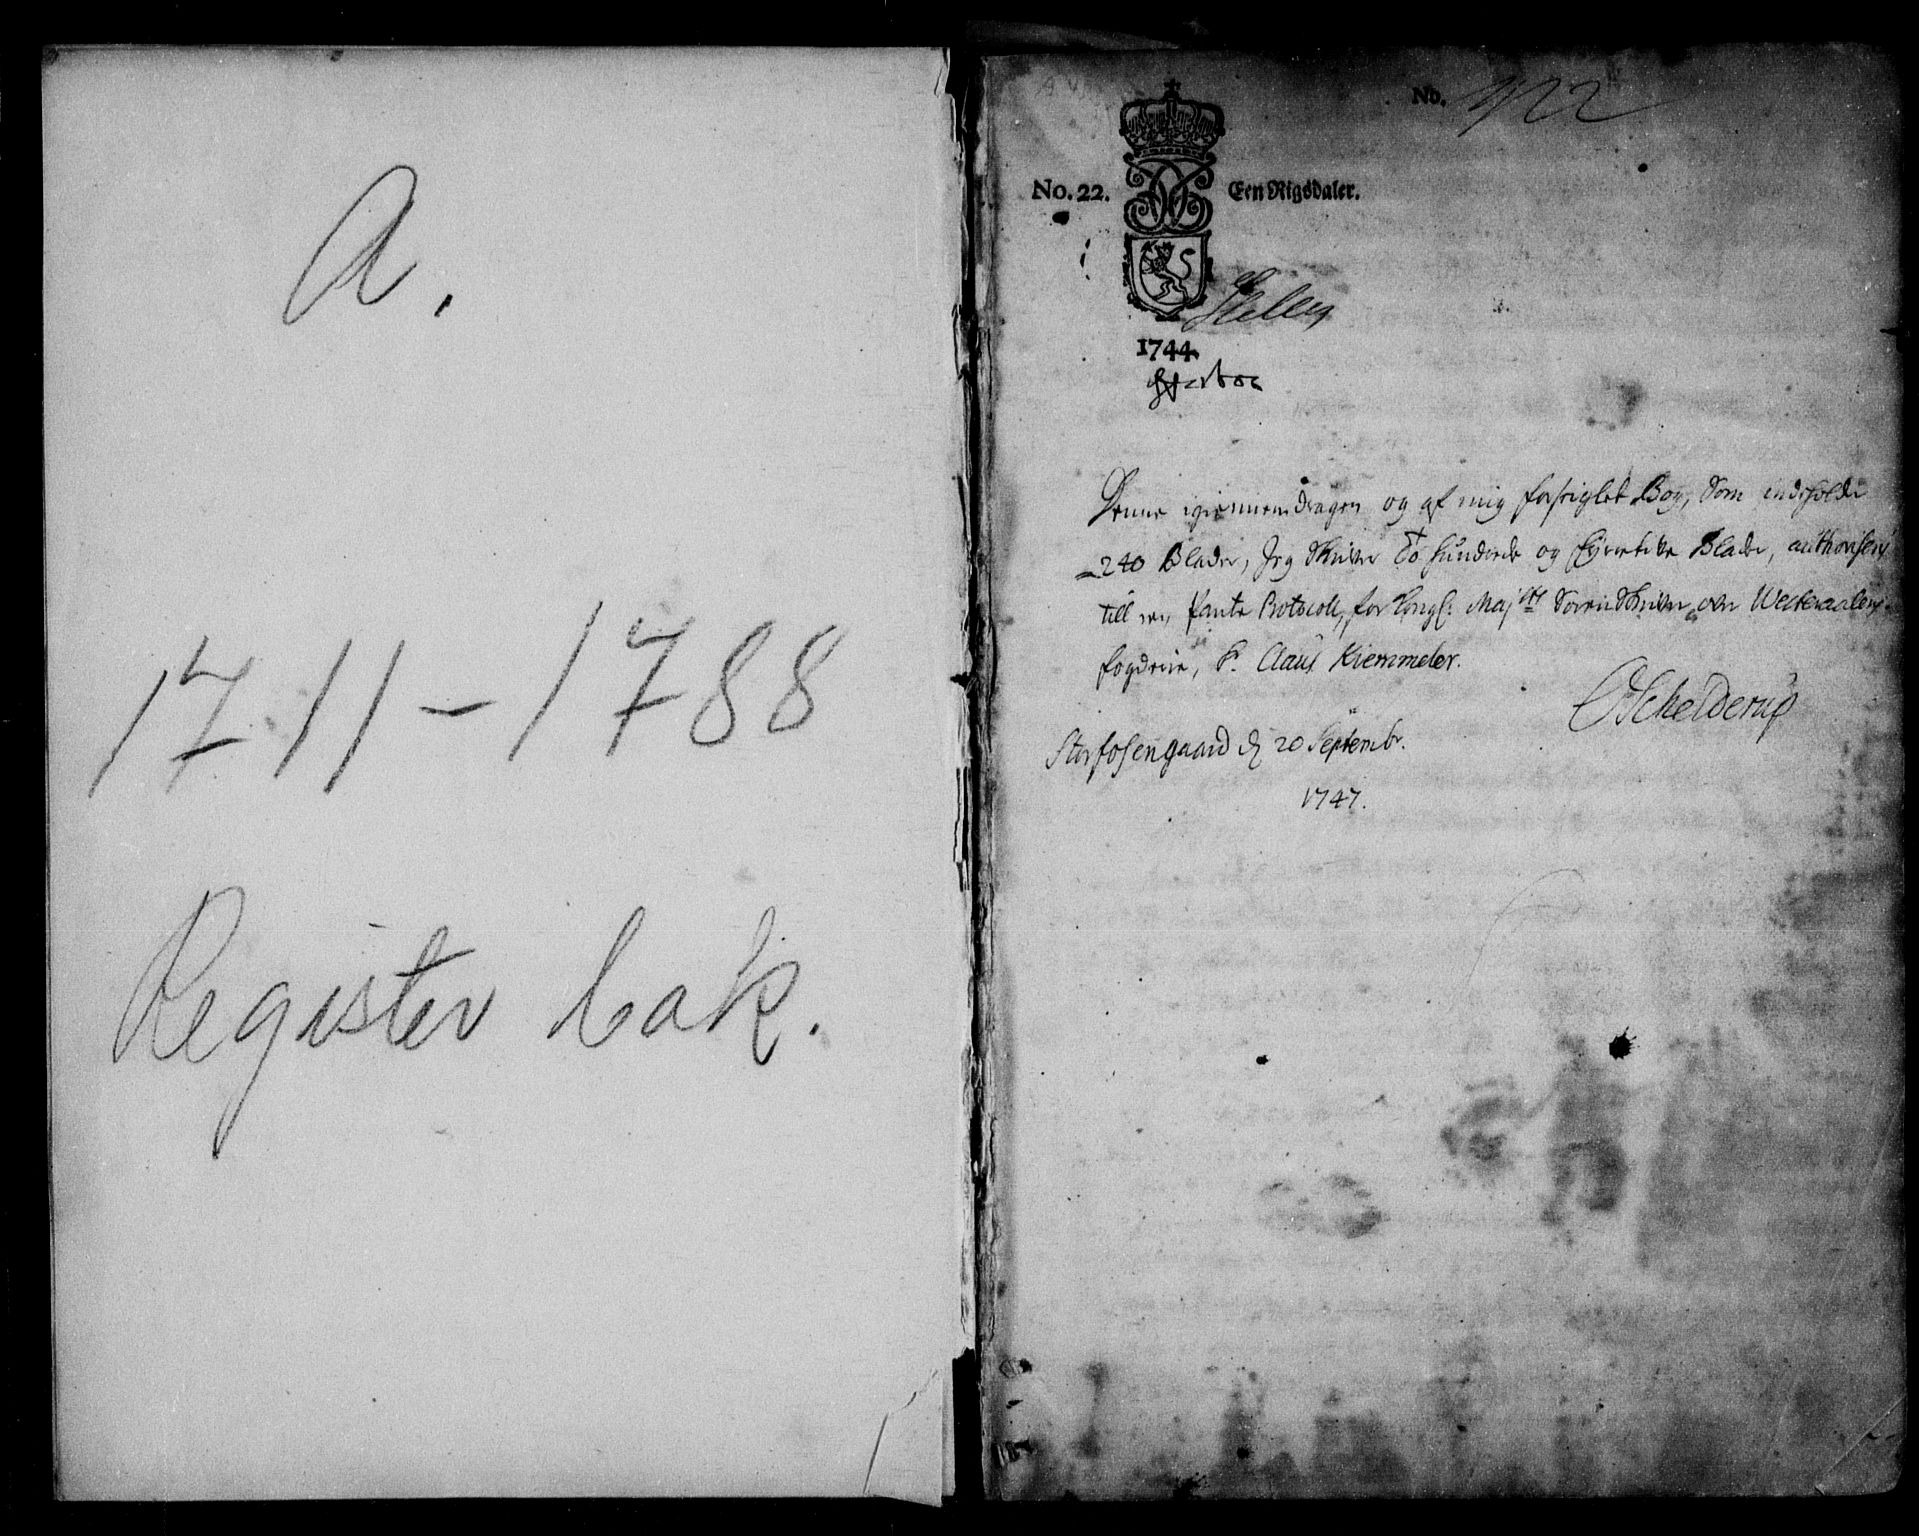 A.
1711-1788
Register bak.
No. 422
No. 22. Een Rigsdaler.
1744.
Denne igiennemdragen og af mig forsiglet Bog, Som indeholder
240 Blader, Jeg Skriver To hundrede og fyrretive Blader, authoriseris
till en Pante Protocoll, for Kongl: Majts Sorenskriver over Westeraalens
fogderie, Sr. Claus Kiemmeler.
OSchelderup
Storfosengaard d 20 Septembr.
1747.